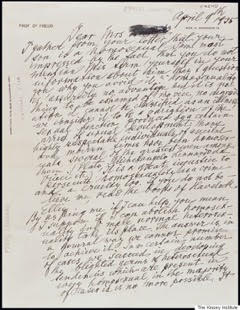 PROF. DR. FREUD
April 9th 1935
Dear Mrs
I gather from your letter that your
son is a homosexual. I am most
impressed by the fact, that you do not
mention this term yourself in your
information about him. May I question
you why you avoid it? Homosexuality
is assuredly no advantage but it is nothing
to be ashamed of, no vice, no degradation,
it cannot be classified as an illness; we
consider it to be a variation of the
sexual function produced by a certain
arrest of sexual development. Many
highly respectable individuals of ancient
and modern times have been homosexuals,
several of the greatest men among
them
It is a great injustice to
persecute homosexuality as a crime
and a cruelty too. If you do not believe
me, read the books of Havelock
Ellis.
By asking me if I can help, you mean
I suppose, if I can abolish homosexuality
and make normal heterosexuality
take its place. The answer is, in
a general way, we cannot promise
to achieve it. In a certain number
of cases we succeed in developing
the blighted germs of heterosexual
tendencies which are present in
every homosexual, in the majority
of cases it is no more possible.
The Kinsey Institute